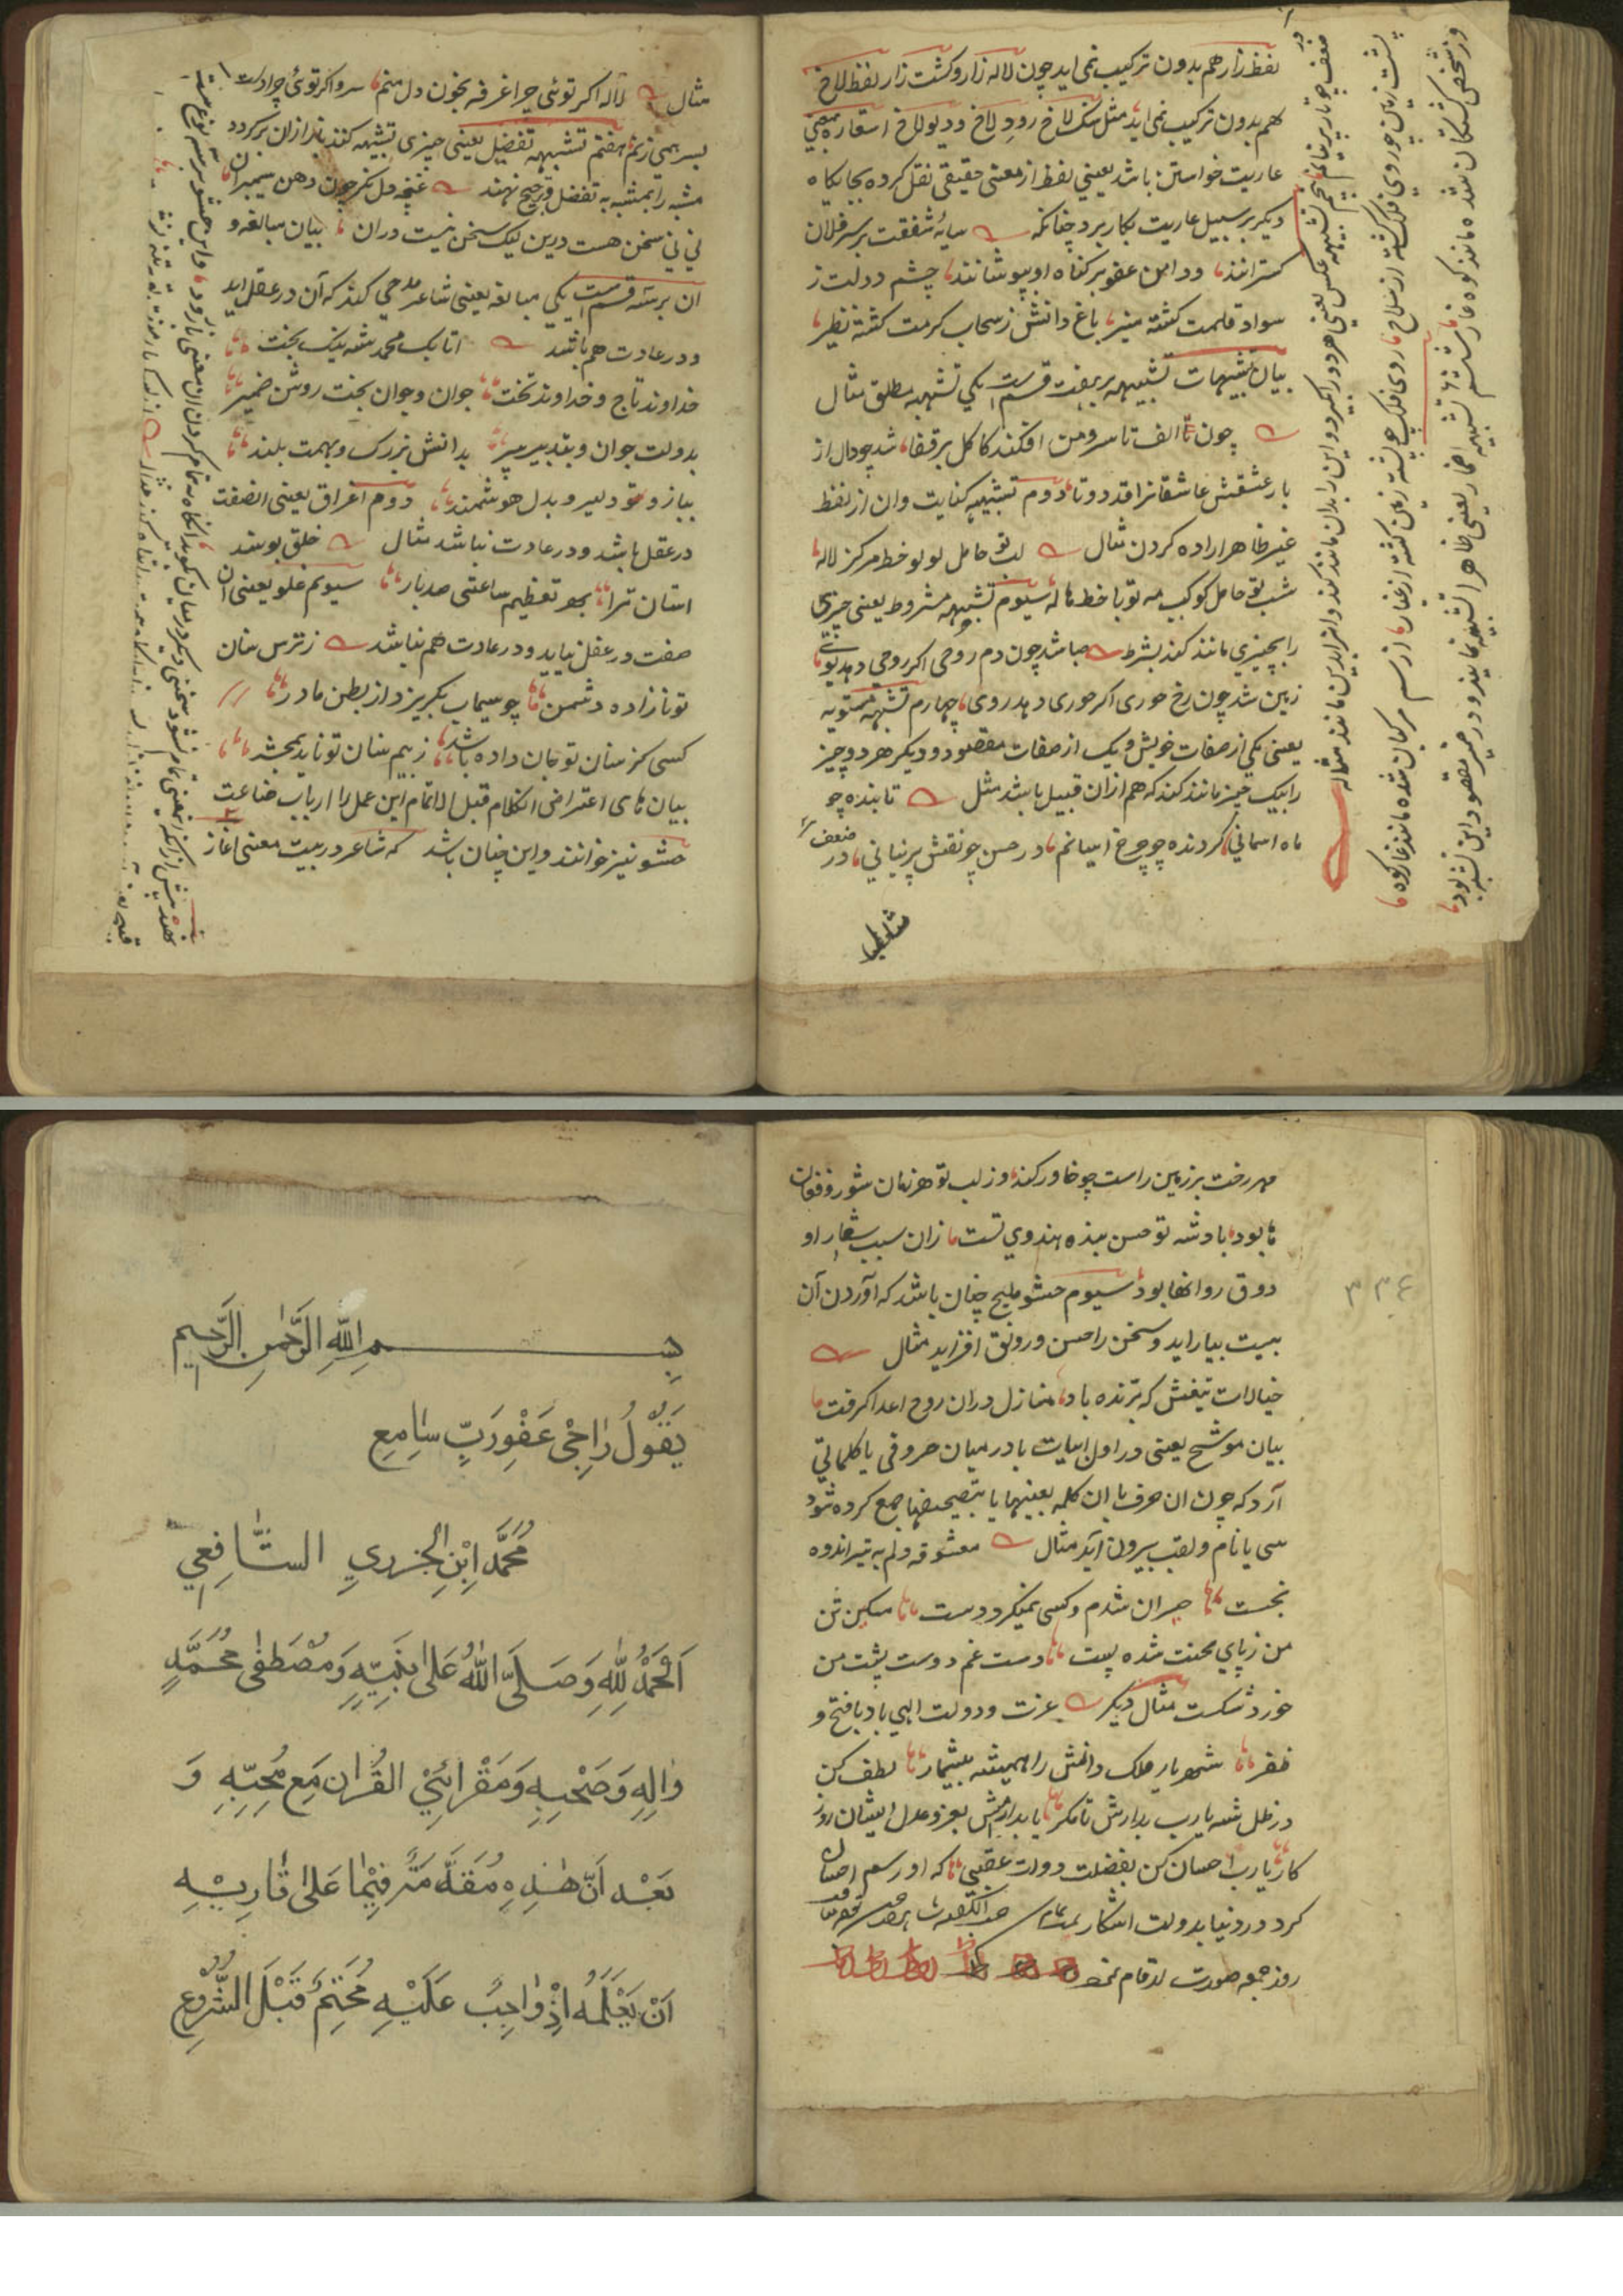 لفظ زار هم بدون ترکیب نمی اید چون لاله زار و کشت زار لفظ لاخ
هم بدون ترکیب نمی اید مثل سنک لاخ رود لاخ و دیولاخ استعاره بمعنی
عاریت خواستن باشد یعنی لفظ از معنی حقیقی نقل کرده بجایکاه
دیکر بر سبیل عاریت بکار برد چنانکه سایۀ شفقت بر سر فلان
کسترانند ودامن عفو بر کناه او بپوشانند چشم دولت ز
سواد قلمت کشته منیر باغ دانش ز سحاب کرمت کشته نظیر
بیان تشبیهات تشبیه بر هفت قسم است یکی تشبیه مطلق مثال
چون تا الف تا سر و من افکند کاکل بر قفا شد چو دال از
بار عشقش عاشقانرا قد دوتا دوم تشبیه کنایت وان از لفظ
غیر ظاهر اراده کردن مثال لب تو حامل لولو خط مرکز لاله
شب تو حامل کوکب مه تو با خط هاله سیوم تشبیه مشروط یعنی چیزی
را بچیزی مانند کند بشرط صبا شد چون دم روحی اکر روحی دهد بوئی
زمین شد چون رخ حوری اکر حوری دهد روی چهارم تشبیه تسویه
یعنی یکی از صفات خویش و یک از صفات مقصود و دیکر هر دو چیز
را بیک چیز مانند کند که هم ازان قبیل باشد مثل تابنده چو
ماه اسمانی کردنده چو چرخ اسیانم در حسن چو نقش پرنیانی در ضعف
ضعف چو تار پرنیانم پنجم تشبیه عکس یعنی هر دو را بکیرد و این را بدان مانند کند وانرا بدین مانند مثاله
پشت زمین چو روی فلک کشته از سلاح روی فلک چو پشت زمین کشته از غبار از سم مرکبان شده مانند غار کوه
وز شخص کشتکان شده مانند کوه غار ششم تشبیه اضمار یعنی ظاهرا تشبیه نمایند و در ضمیر مقصود این نبود
مثال لاله اکر توئی چرا غرقه بخون دل منم سرو اکر توئی چرا دست
بسر همی زنم هفتم تشبیه تفضیل یعنی چیزی تشبیه کنند باز ازان برکردد
مشبه را بمشبه به تفضل و ترجیح نهند غنچه دل نکر چون دهن سیمبران
نی نی سخن هست درین لیک سخن نیست دران بیان مبالغه و
ان بر سه قسم است یکی مبالغه یعنی شاعر مدحی کند که آن در عقل اید
و در عادت هم باشد اتابک محمد شه نیک بخت
خداوند تاج و خداوند تخت جوان و جوان بخت روشن ضمیر
بدولت جوان و بتدبیر پیر بدانش بزرک و بهمت بلند
ببازو دلیر و بدل هوشمند دوم اغراق یعنی انصفت
در عقل باشد و در عادت نباشد مثال خلق بوسند
استان ترا بهر تعظیم ساعتی صد بار سیوم غلو یعنی ان
صفت در عقل نیاید و در عادت هم نباشد ز ترس سنان
تو نازاده دشمن چو سیماب بکریزد از بطن مادر
کسی کز سنان تو جان داده باشد ز بیم سنان تو ناید بمحشر
بیان های اعتراض الکلام قبل التمام این عمل را ارباب صناعت
حشو نیز خوانند و این چنان باشد که شاعر در بیت معنی اغاز
مهر رخت بر زمین راست چو خاور کند وز لب تو هر زمان شور و فغان
ها بود بادشه تو حسن بنده هندوی تست زان سبب شعار او
دوق روانها بود سیوم حشو ملیح چنان باشد که آوردن آن
بیت بیاراید و سخن را حسن و رونق افزاید مثال
خیالات تیغش که برنده باد منازل دران روح اعدا کرفت
بیان موشح یعنی در اول ابیات یا در میان حروفی یا کلماتی
آرد که چون ان حرف یا ان کلمه بعینها یا بتصحیفها جمع کرده شود
سی یا نام و لقب بیرون آید مثال معشوقه دلم به تیر اندوه
بخست حیران شدم و کسی نمیکرد دست مسکین تن
من زپای محنت شده پست دست غم دوست پشت من
خورد شکست مثال دیکر عزت و دولت الهی باد با فتح و
ظفر شهریار ملک دانش را همیشه بیشمار لطف کن
در ظل شه یارب بدارش تا مکر یابد ارمش بعز و عدل ایشان روز
کار یارب احسان کن بفضلت دولت عقبی که او رسم احسان
کرد در دنیا بدولت اشکار
روز جمعه صورت ارقام
بسم الله الرحمن الرحيم
يَقُولُ رَاجِيْ عَفْوِ رَبٍّ سَامِعِ
مُحَمَّدُ ابْنُ الجَزَرِيِ الشَّافِعِي
اَلْحَمْدُ لِلّٰهِ وَصَلَّى اللّٰهُ عَلٰى نَبِيِّهِ وَمُصْطَفٰى مُحَمَّدٍ
وَاٰلِهِ وَصَحْبِهِ وَمُقْرِئِي القُرْاٰنِ مَعَ مُحِبِّهِ وَ
بَعْدُ اَنَّ هٰذِهِ مُقَدَّمَةٌ فِيْمَا عَلٰى قَارِيِهِ
اَنْ يَعْلَمَهُ اِذْ وَاجِبٌ عَلَيْهِ مُحْتَّمٌ قَبْلَ الشُّرُوعِ